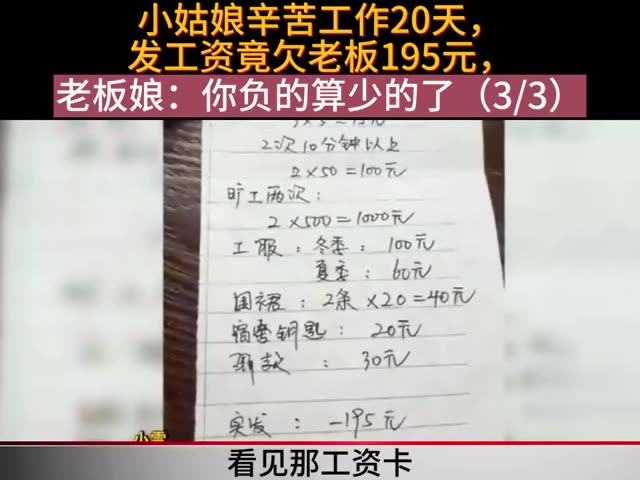 小姑娘辛苦工作20天，
发工资竟欠老板195元，
老板娘：你负的算少的了（3/3）
2次10分钟以上
2×50=100元
旷工两次：
2×500=1000元
工服：冬季：100元
夏季：60元
围裙：2条×20=40元
宿舍钥匙：20元
：30元
实发：-195元
小雪
看见那工资卡